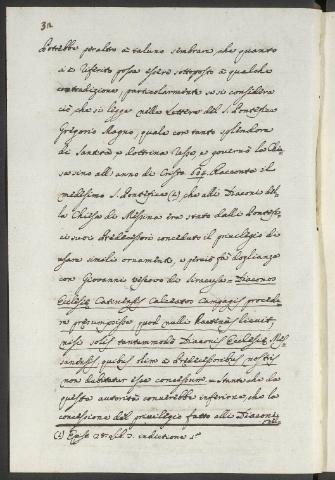 32
Potrebbe peraltro a taluno sembrare, che quanto
si è riferito possa essere sottoposto a qualche
contradizione, particolarmente se si considera
ciò che si legge nelle Lettere del S. Pontefice
Gregorio Magno, quale con tanto splendore
di Santità e dottrina resse, e governò la Chie-
sa sino all'anno di Cristo 604. Racconta il
medesimo S. Pontefice (1) che alli Diaconi del-
la Chiesa di Messina era stato dalli Pontefi-
ci suoi Predecessori conceduto il privilegio di
usare simili ornamenti, e perciò fa doglianza
con Giovanni vescovo di Siracusa = Diaconos
Ecclesiæ Catanensis Calceatos Campagis procede-
re præsumpsisse, quod nulli
nisi solis tantummodo Diaconis Ecclesiæ Mes-
sanensis quibus olim a Prædecessoribus nostris
non dubitatur esse concessum = Stante che da
questa autorità converebbe inferire, che la
concessione del privilegio fatto alli Diaconi
(1) Epist. 28 lib. 7. indictione 1ª